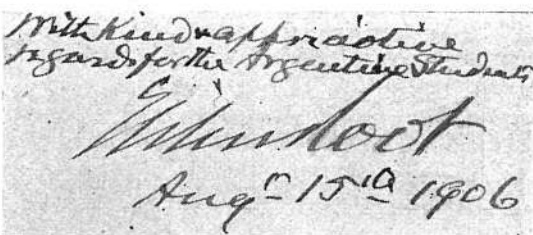 With kind & appreciative
regards for the Argentine Students
Elihu Root
Augt 15th 1906